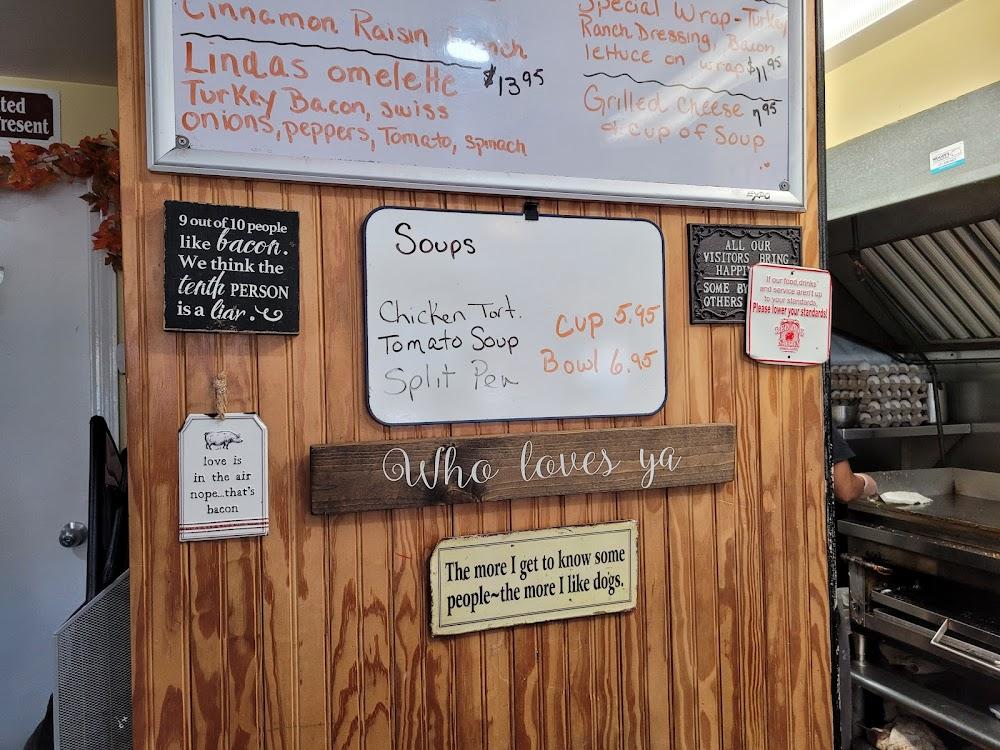 Cinnamon Raisin
Lindas omelette $13.95
Turkey Bacon, swiss
onions, peppers, Tomato, spinach
Special Wrap-Turkey
Ranch Dressing, Bacon
lettuce on wrap $11.95
Grilled Cheese 7.95
cup of Soup
EXPO
ted
Present
9 out of 10 people
like bacon.
We think the
tenth PERSON
is a liar.
Soups
Chicken Tort.
Tomato Soup
Split Pea
Cup 5.95
Bowl 6.95
ALL OUR
VISITORS BRING
HAPPI
SOME BY
OTHERS
If our food, drinks
and service aren't up
to your standards,
Please lower your standards!
love is
in the air
nope...that's
bacon
Who loves ya
The more I get to know some
people~the more I like dogs.